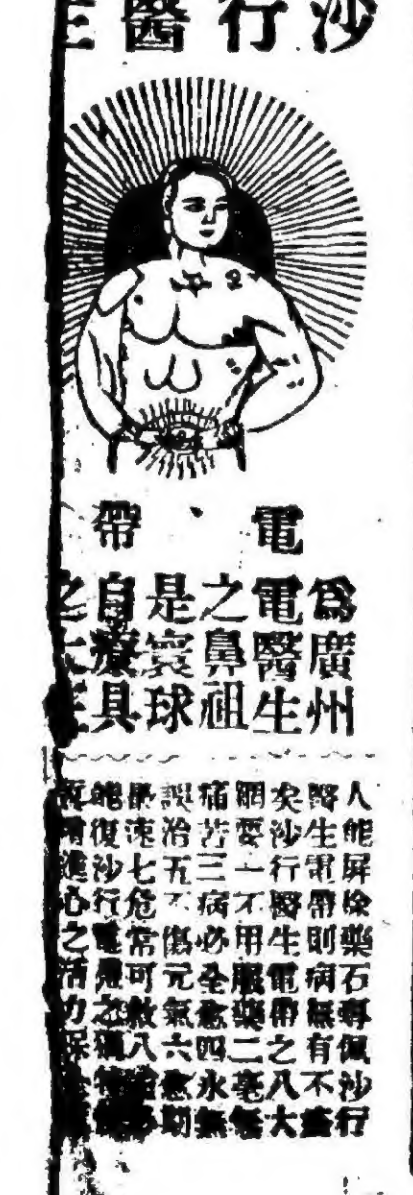 沙行醫生
電、帶
爲廣州
電醫生
之鼻祖
是寰球
自療具
之大王
人能屏除藥石專佩沙行
醫生電帶則病無有不痊
矣沙行醫生電帶之八大
綱要一不用服藥二毫無
痛苦三病必全愈四永無
誤治五不傷元氣六愈期
最速七危常可救八
能復沙行電帶之獨特
增進心之活力保